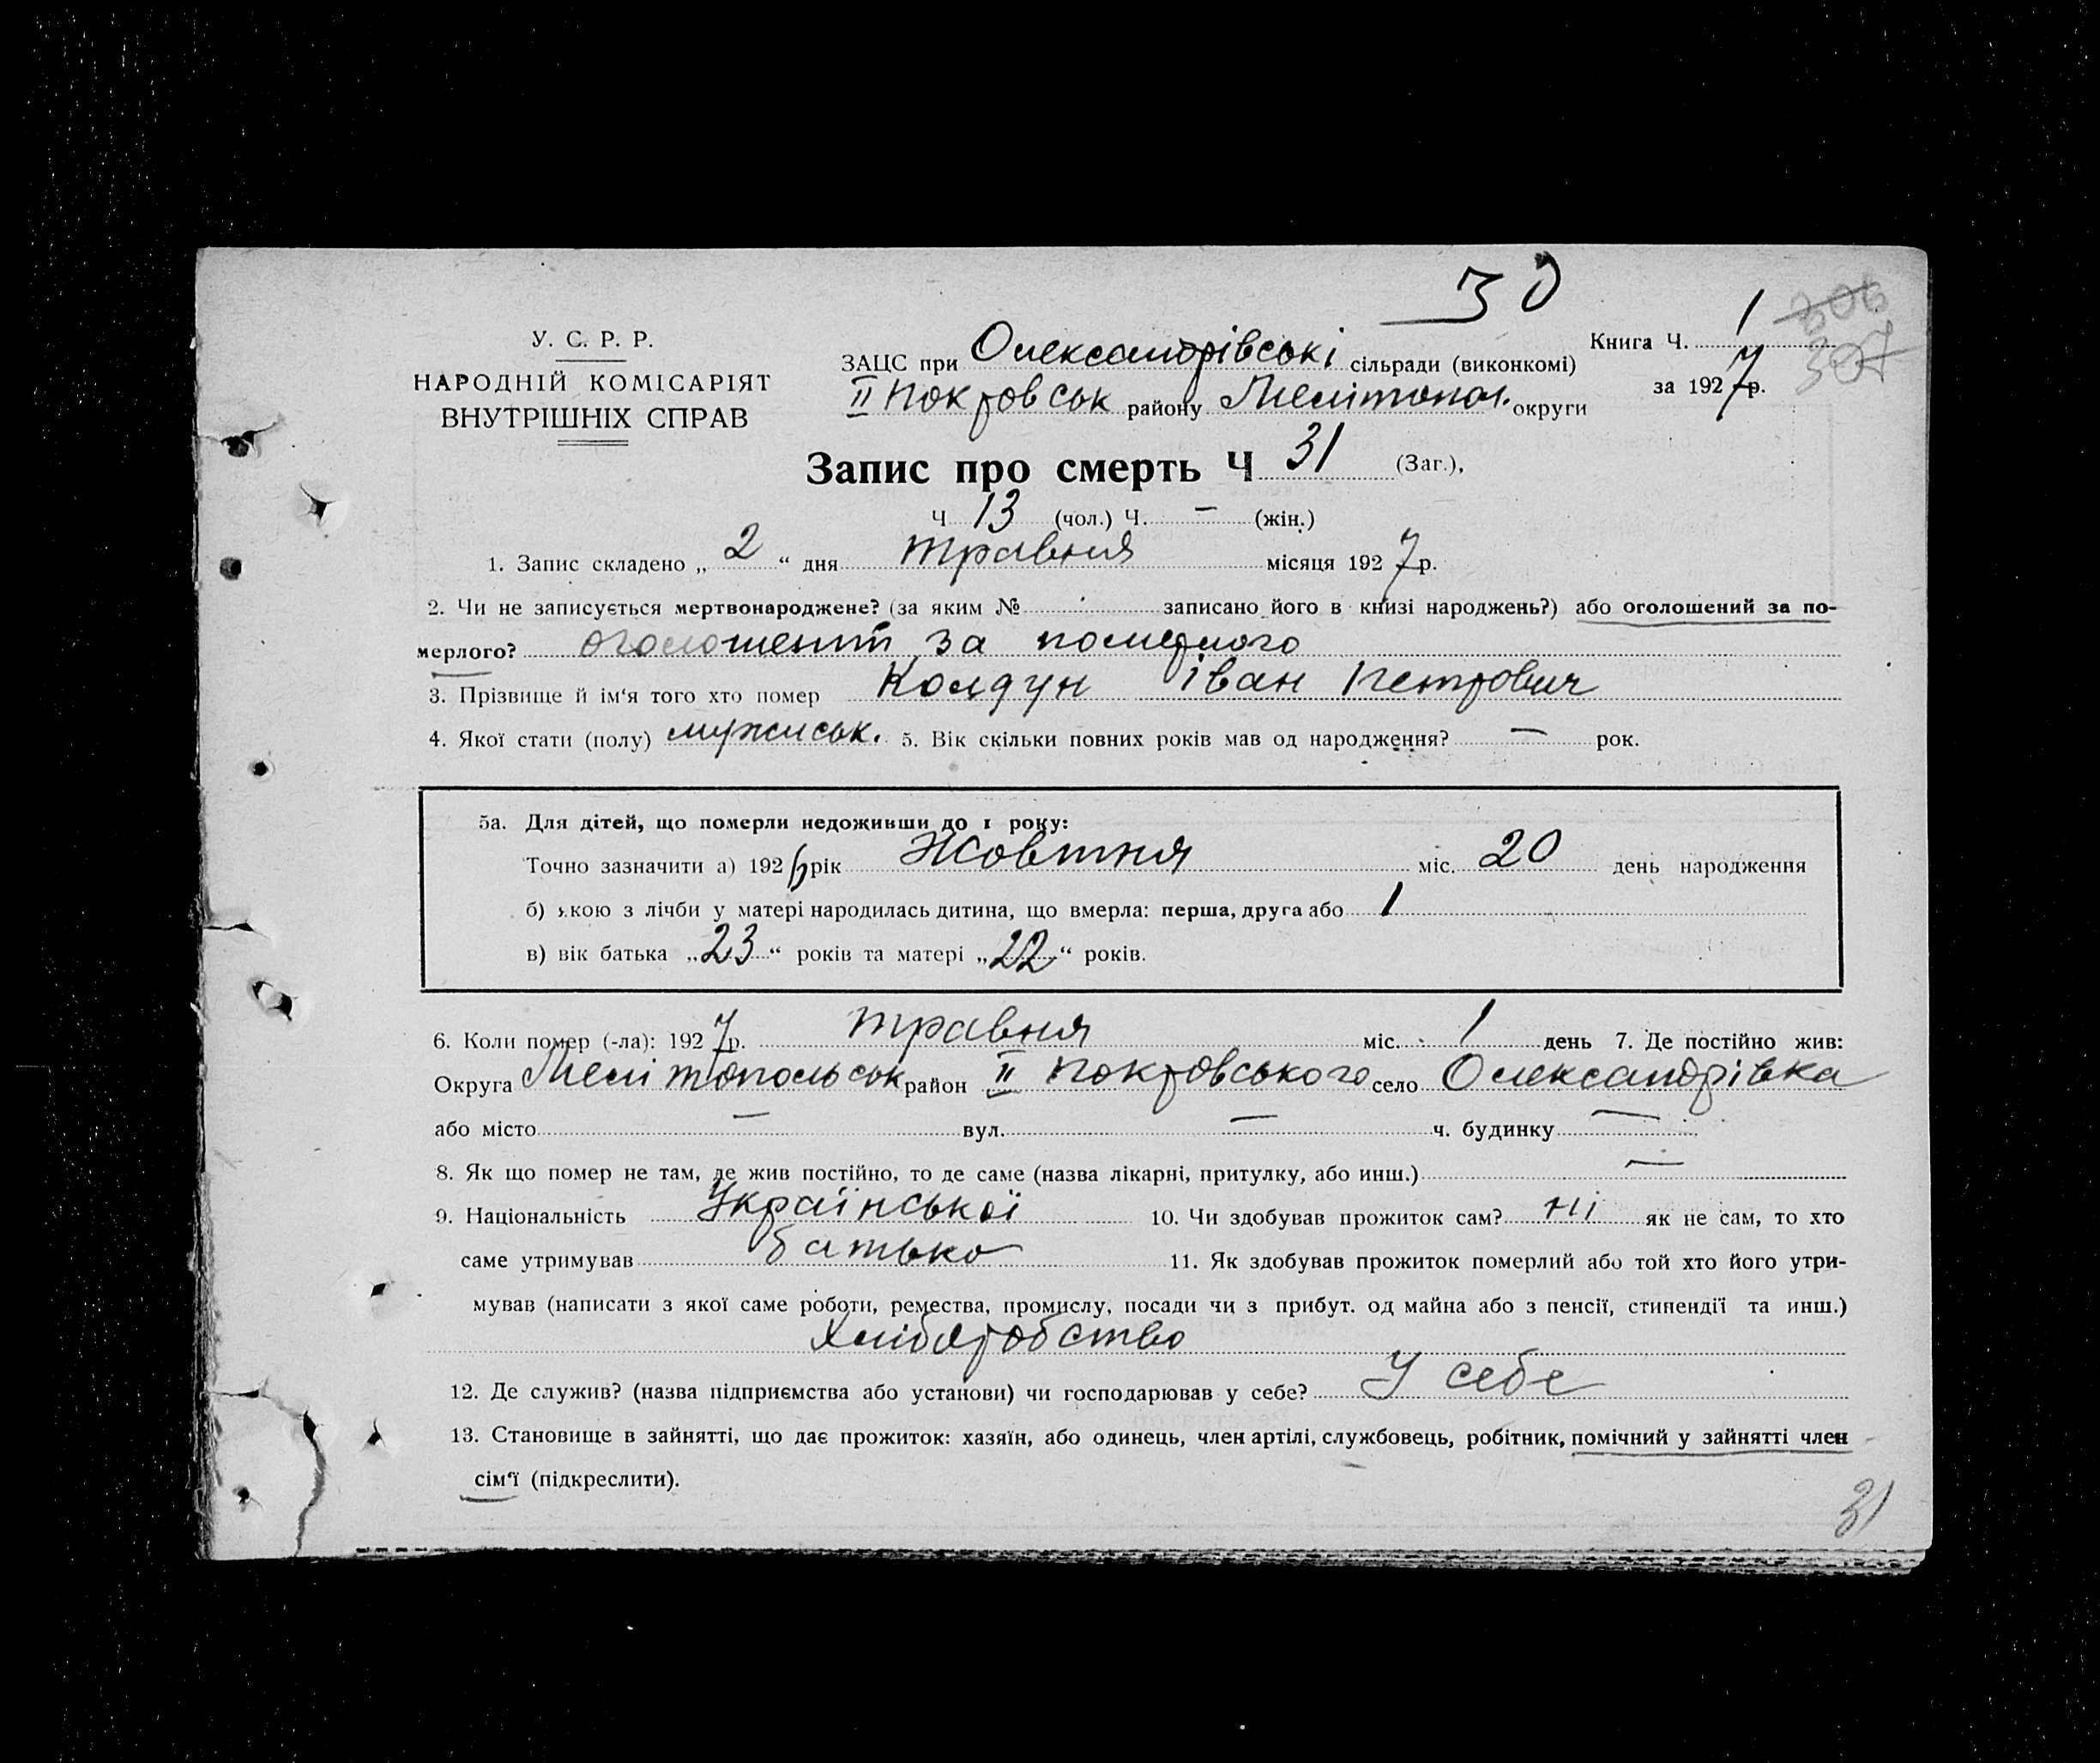 30
У. С. Р. Р.
НАРОДНІЙ КОМІСАРІЯТ
ВНУТРІШНІХ СПРАВ
ЗАЦС при Олександрівські сільради (виконкомі)
II Покровськ району Мелітопол. округи
Книга Ч. 1
за 1927 р.
306
307
Запис про смерть Ч 31 (Заг.),
Ч 13 (чол.) Ч. — (жін.)
1. Запис складено „ 2 “ дня травня місяця 1927 р.
2. Чи не записується мертвонароджене? (за яким № записано його в книзі народжень?) або оголошений за по-
мерлого? оголошений за померлого
3. Прізвище й ім‘я того хто помер Колдун Іван Петрович
4. Якої стати (полу) мужиськ. 5. Вік скільки повних років мав од народження? — рок.
5а. Для дітей, що померли недоживши до 1 року:
Точно зазначити а) 1926 рік Жовтня міс. 20 день народження
б) якою з лічби у матері народилась дитина, що вмерла: перша, друга або 1
в) вік батька „23“ років та матері „22“ років.
6. Коли помер (-ла): 1927 р. травня міс. 1 день 7. Де постійно жив:
Округа Мелітопольськ район II Покровського село Олександрівка
або місто — вул. — ч. будинку —
8. Як що помер не там, де жив постійно, то де саме (назва лікарні, притулку, або инш.) —
9. Національність Української 10. Чи здобував прожиток сам? ні як не сам, то хто
саме утримував батько 11. Як здобував прожиток померлий або той хто його утри-
мував (написати з якої саме роботи, ремества, промислу, посади чи з прибут. од майна або з пенсії, стипендії та инш.)
хліборобство
12. Де служив? (назва підприємства або установи) чи господарював у себе? У себе
13. Становище в зайнятті, що дає прожиток: хазяїн, або одинець, член артілі, службовець, робітник, помічний у зайнятті член
сім‘ї (підкреслити).
31